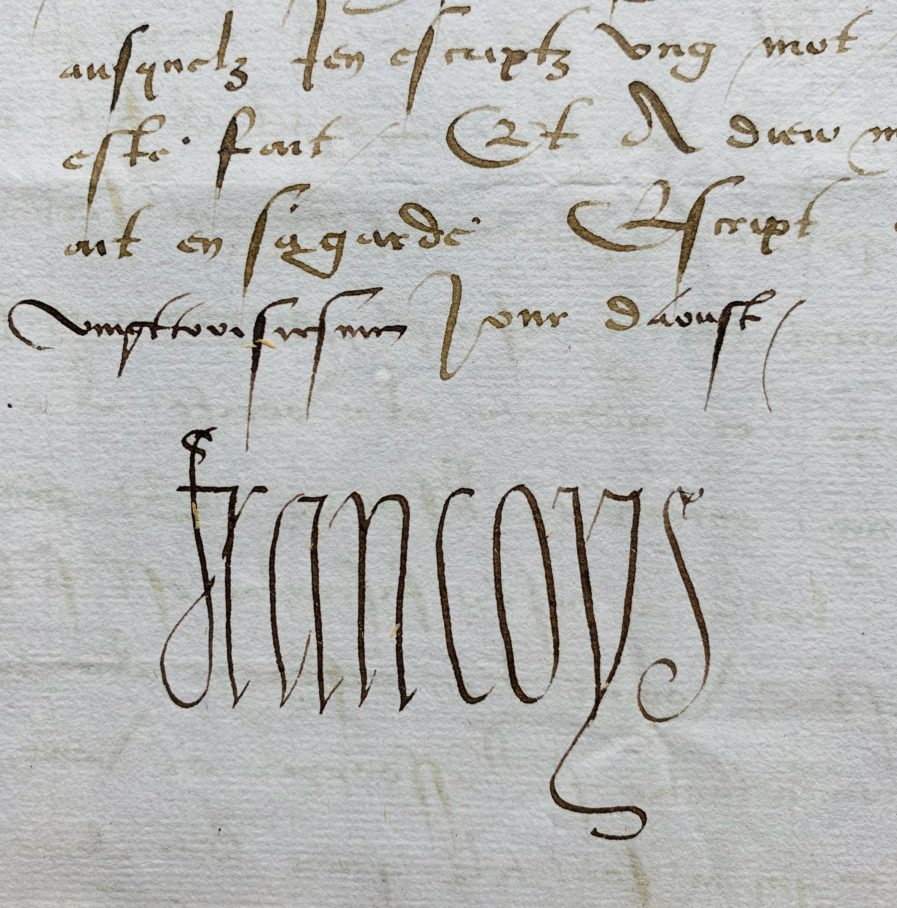 ausquelz Jen escriptz ung mot
este fait Et A dieu
ait en sa garde Escript
vingttroisiesme Jour daoust
francoys